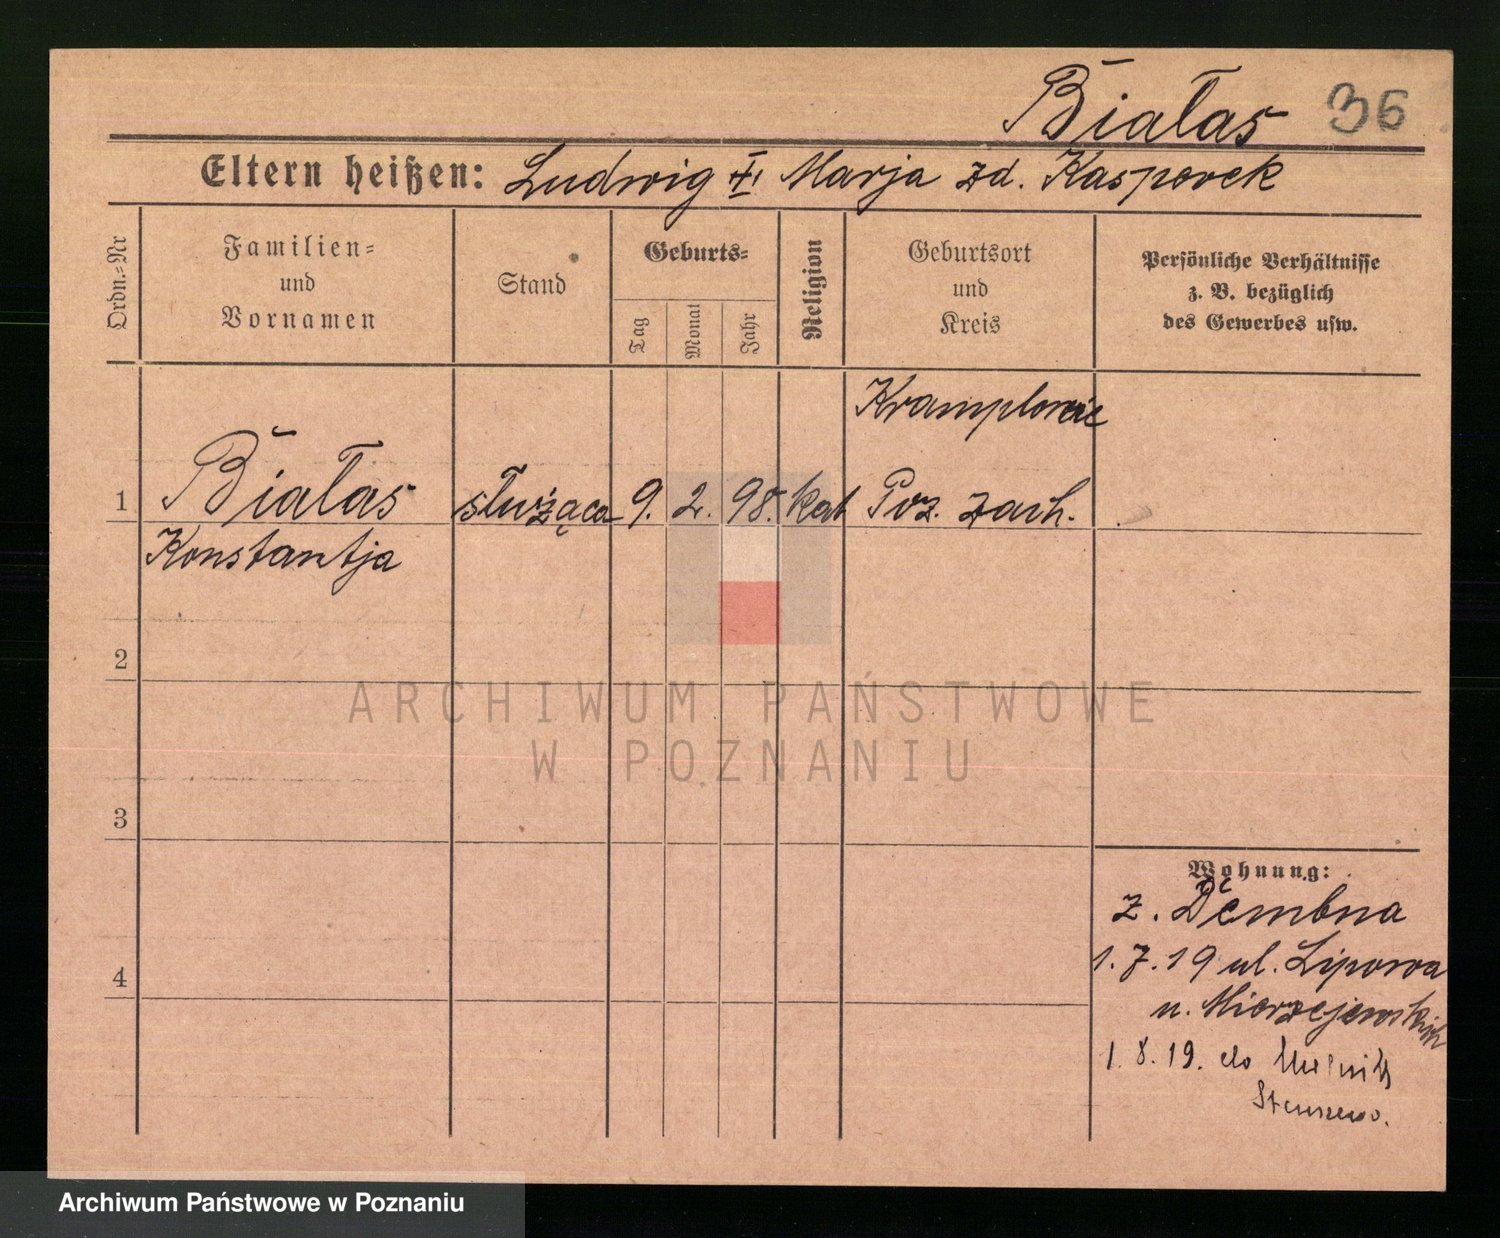 Białas 36
Eltern heißen: Ludwig †, Marja zd. Kasperek
Ordn.=Nr
Familien=
und
Vornamen
Stand
Geburts=
Tag
Monat
Jahr
Religion
Geburtsort
und
Kreis
Persönliche Verhältnisse
z. B. bezüglich
des Gewerbes usw.
Kramplewic
1 Białas służąca 9. 2. 98. kat Poz. zach.
Konstantja
2
ARCHIWUM PAŃSTWOWE
W POZNANIU
3
Wohnung:
z. Dembna
1.7.19 ul. Lipowa
u. Mierzejewskich
4
1.8.19. do
Archiwum Państwowe w Poznaniu